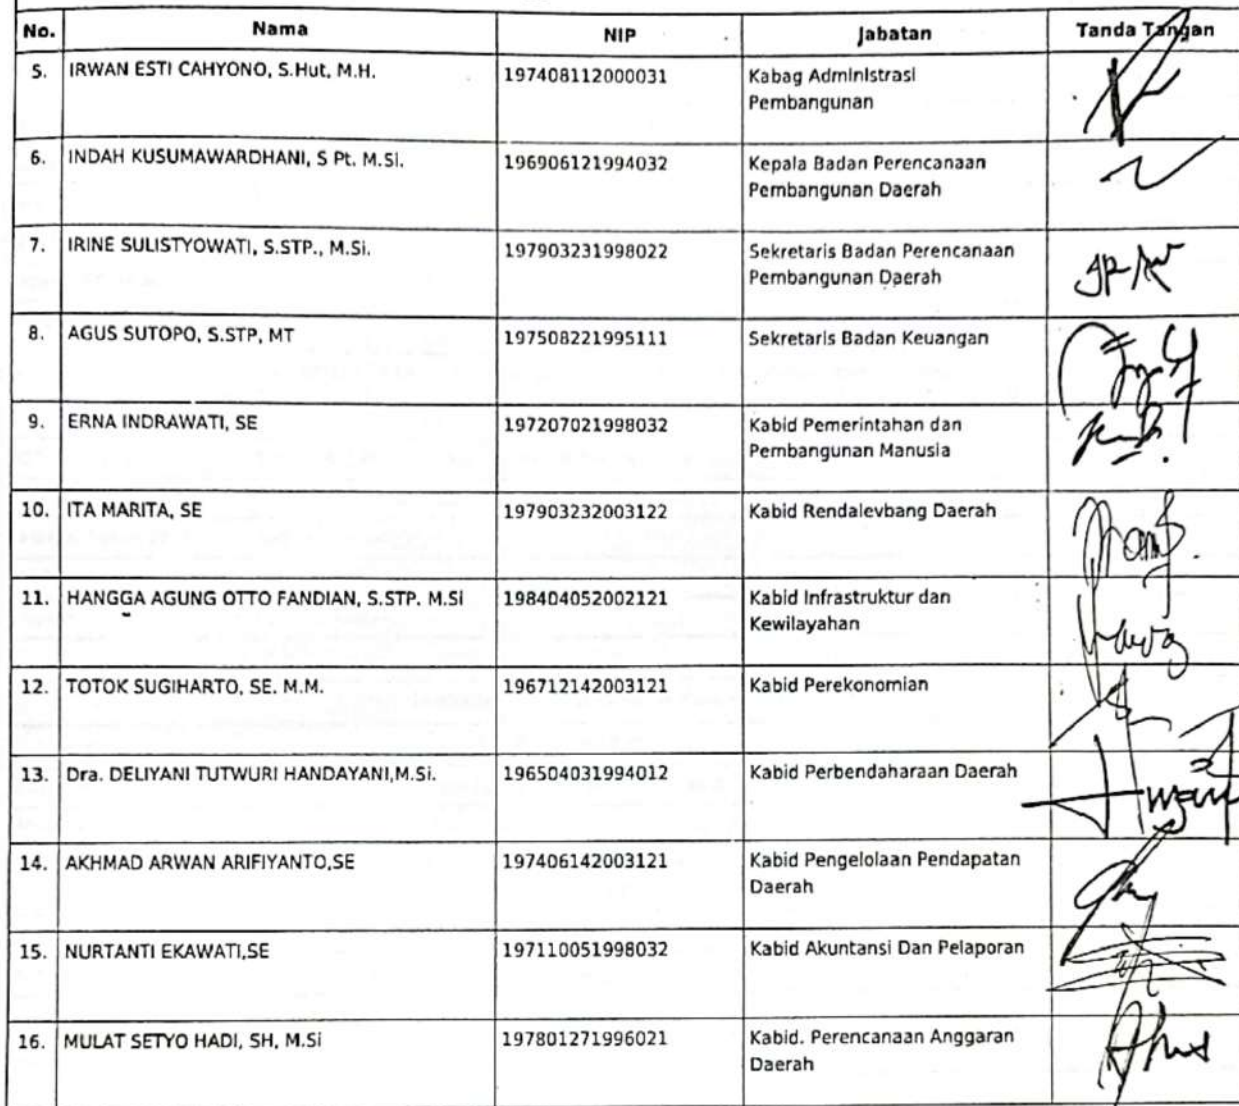 No. Nama NIP Jabatan Tanda Tangan
5. IRWAN ESTI CAHYONO, S.Hut, M.H. 197408112000031 Kabag Administrasi
Pembangunan
6. INDAH KUSUMAWARDHANI, S Pt. M.Si. 196906121994032 Kepala Badan Perencanaan
Pembangunan Daerah
7. IRINE SULISTYOWATI, S.STP., M.Si. 197903231998022 Sekretaris Badan Perencanaan
Pembangunan Daerah
8. AGUS SUTOPO, S.STP, MT 197508221995111 Sekretaris Badan Keuangan
9. ERNA INDRAWATI, SE 197207021998032 Kabid Pemerintahan dan
Pembangunan Manusia
10. ITA MARITA, SE 197903232003122 Kabid Rendalevbang Daerah
11. HANGGA AGUNG OTTO FANDIAN, S.STP. M.Si 198404052002121 Kabid Infrastruktur dan
Kewilayahan
12. TOTOK SUGIHARTO, SE. M.M. 196712142003121 Kabid Perekonomian
13. Dra. DELIYANI TUTWURI HANDAYANI,M.Si. 196504031994012 Kabid Perbendaharaan Daerah
14. AKHMAD ARWAN ARIFIYANTO,SE 197406142003121 Kabid Pengelolaan Pendapatan
Daerah
15. NURTANTI EKAWATI,SE 197110051998032 Kabid Akuntansi Dan Pelaporan
16. MULAT SETYO HADI, SH, M.Si 197801271996021 Kabid. Perencanaan Anggaran
Daerah